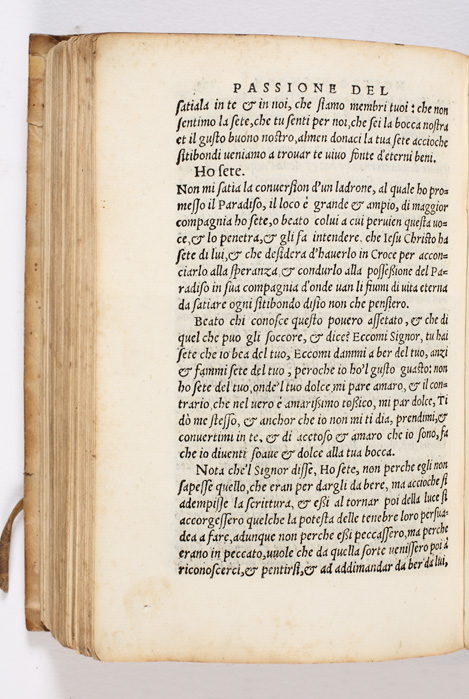 PASSIONE DEL
satiala in te & in noi, che siamo membri tuoi: che non
sentimo la sete, che tu senti per noi, che sei la bocca nostra
et il gusto buono nostro, almen donaci la tua sete accioche
sitibondi ueniamo a trouar te uiuo fonte d'eterni beni.
Ho sete.
Non mi satia la conuersion d'un ladrone, al quale ho pro-
messo il Paradiso, il loco è grande & ampio, di maggior
compagnia ho sete, o beato colui a cui peruien questa uo-
ce, & lo penetra, & gli fa intendere, che Iesu Christo ha
sete di lui, & che desidera d'hauerlo in Croce per accon-
ciarlo alla speranza & condurlo alla possessione del Pa-
radiso in sua compagnia d'onde uan li fiumi di uita eterna
da satiare ogni sitibondo disio non che pensiero.
Beato chi conosce questo pouero assetato, & che di
quel che puo gli soccore, & dicce Eccomi Signor, tu hai
sete che io bea del tuo, Eccomi dammi a ber del tuo, anzi
& fammi sete del tuo, peroche io ho'l gusto guasto: non
ho sete del tuo, onde'l tuo dolce, mi pare amaro, & il con-
trario, che nel uero è amarissimo tossico, mi par dolce, Ti
dò me stesso, & anchor che io non mi ti dia, prendimi, &
conuertimi in te, & di acetoso & amaro che io sono, fa
che io diuenti soaue & dolce alla tua bocca.
Nota che'l Signor disse, Ho sete, non perche egli non
sapesse quello, che eran per dargli da bere, ma accioche si
adempisse la scrittura, & essi al tornar poi della luce si
accorgessero quelche la potesta delle tenebre loro persua-
dea a fare, adunque non perche essi peccassero, ma perche
erano in peccato, uuole che da quella sorte uenissero poi à
riconoscersi, & pentirsi, & ad addimandar da ber da lui,